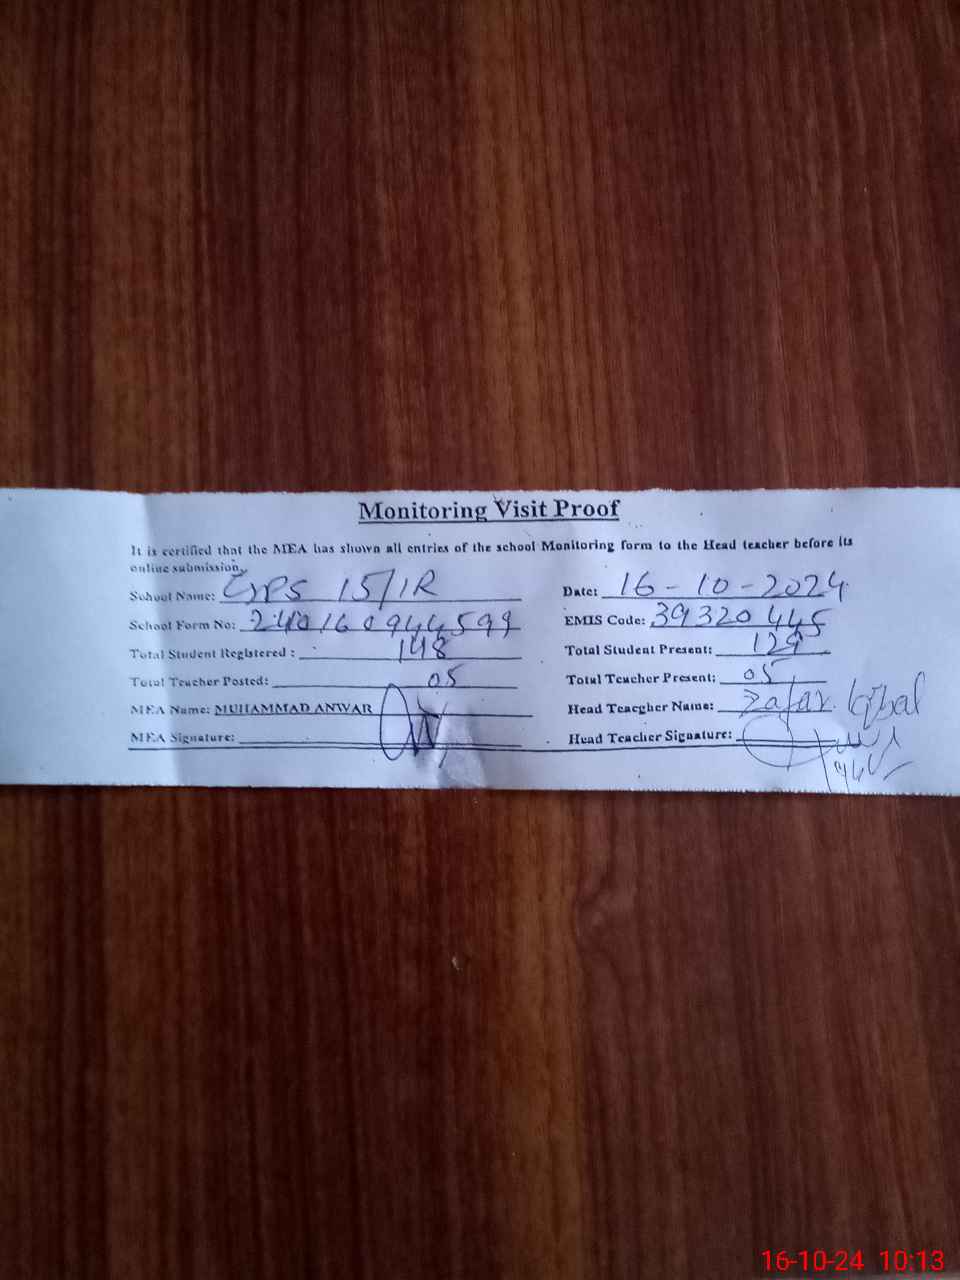 Monitoring Visit Proof
It is certified that the MEA has shown all entries of the school Monitoring form to the Head teacher before its
online submission.
School Name: GPS 15/1R Date: 16-10-2024
School Form No: EMIS Code: 39320445
Total Student Registered : 148 Total Student Present: 129
Total Teacher Posted: 05 Total Teacher Present: 05
MEA Name: MUHAMMAD ANWAR Head Teacgher Name: Zafar Iqbal
MEA Signature: Head Teacher Signature:
16-10-24 10:13